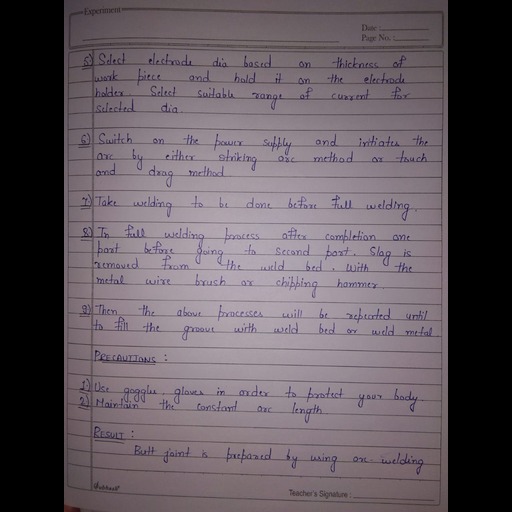 Experiment
Date :
Page No. :
5) Select electrode dia based on thickness of
work piece and hold it on the electrode
holder. Select suitable range of current for
selected dia.
6) Switch on the power supply and initiates the
arc by either striking arc method or touch
and drag method
7) Take welding to be done before full welding.
8) In full welding process after completion one
part before going to second part. Slag is
removed from the weld bed. With the
metal wire brush or chipping hammer.
9) Then the above processes will be repeated until
to fill the groove with weld bed or weld metal
PRECAUTIONS :
1) Use goggles, gloves in order to protect your body
2) Maintain the constant arc length
RESULT :
Butt joint is prepared by using arc welding
Teacher's Signature :